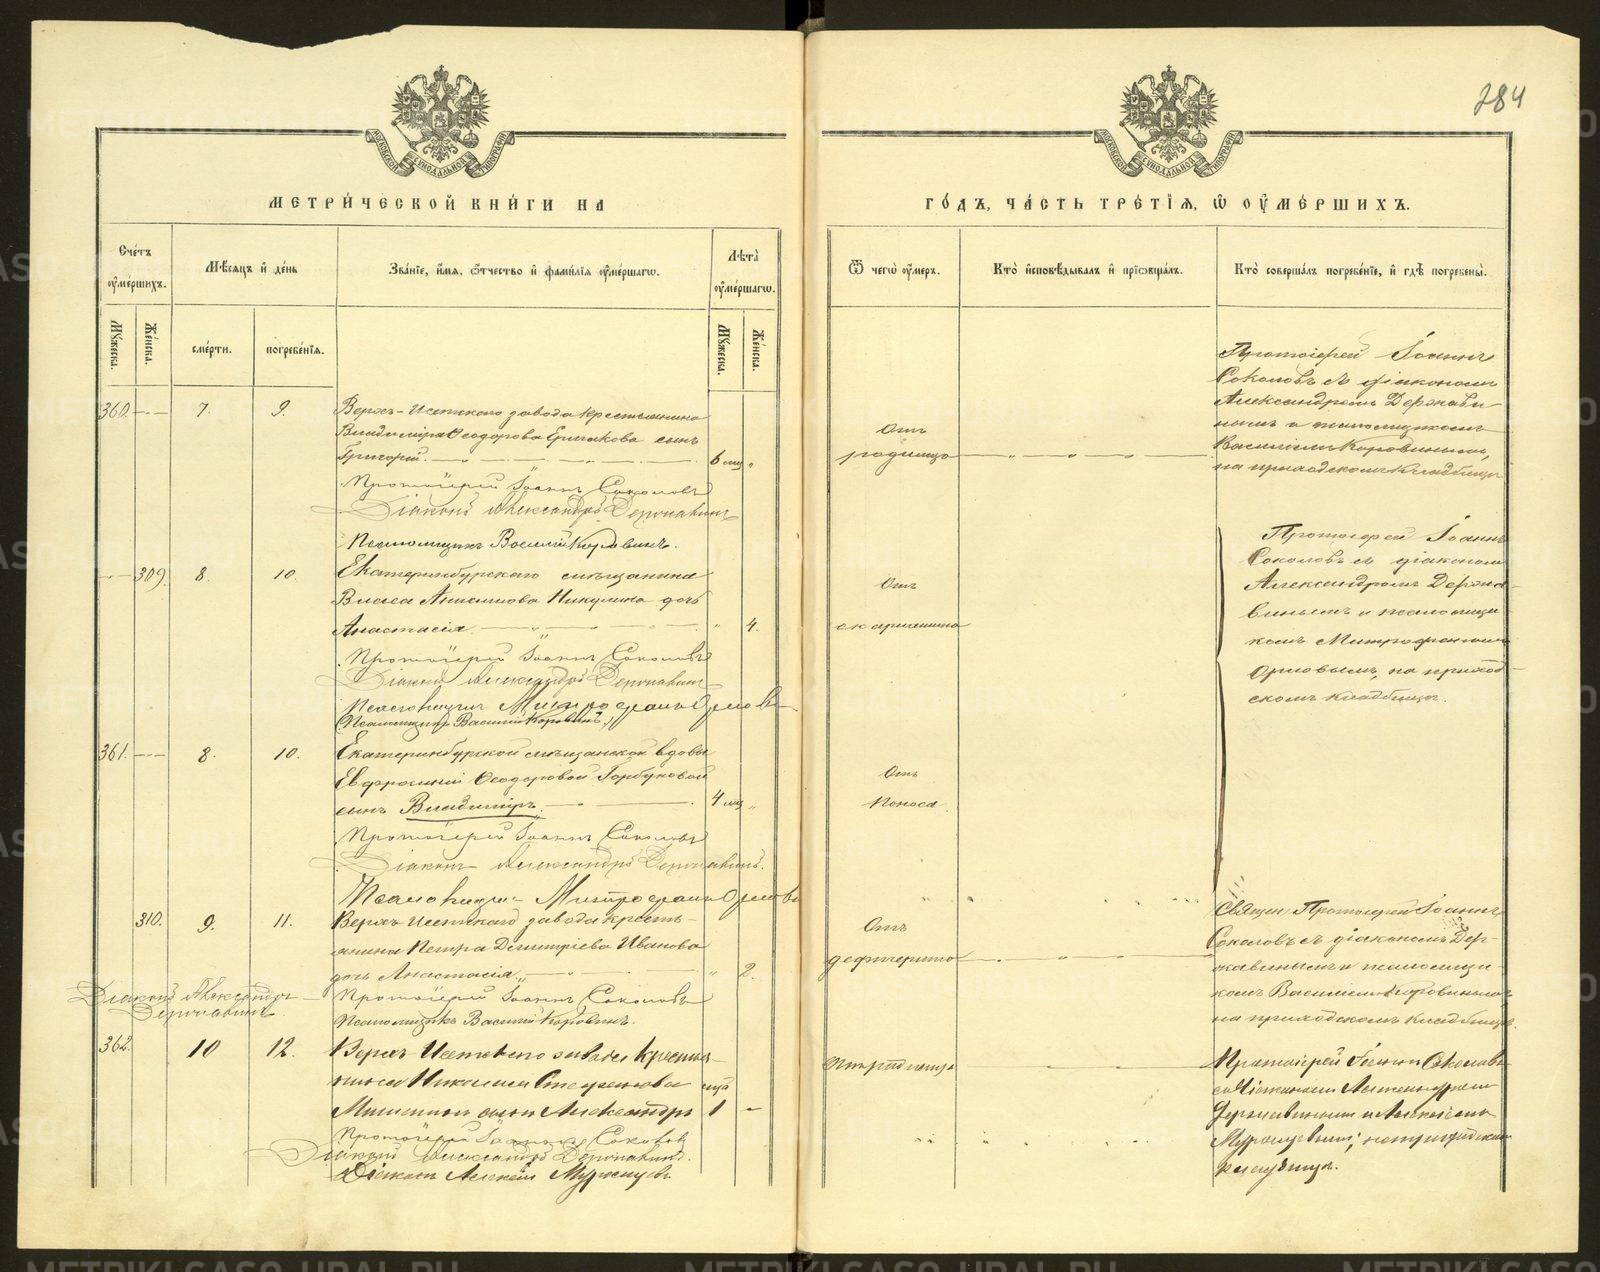 284
МОСКОВСКОЙ СУНОДАЛЬНОЙ ТИПОГРАФІИ
МОСКОВСКОЙ СУНОДАЛЬНОЙ ТИПОГРАФІИ
МЕТРИ́ЧЕСКОЙ КНИ́ГИ НА
ГО́ДЪ, ЧА́СТЬ ТРЕ́ТІЯ, Ѡ ОУМЕ́РШИХЪ.
Сче́тъ оумершихъ.
Мѣсяцъ и де́нь
Зва́ніе, и́мя, ѻ҆тчество и фами́лія оумершагѡ.
Лѣта̀ оумершагѡ.
Ѿ чегѡ̀ оумеръ.
Кто̀ исповѣдывалъ и пріѡбщалъ.
Кто̀ соверша́лъ погребе́ніе, и гдѣ̀ погребены̀.
Мꙋжеска.
Же́нска.
сме́рти.
погребе́нія.
Мꙋжеска.
Же́нска.
360. 7. 9.
Верхъ-Исетскаго завода крестьянина
Владиміра Ѳеодорова Ермакова сынъ
Григорій. 6 мц
Протоіерей Іоаннъ Соколовъ
Діаконъ Александръ Державинъ
Псаломщикъ Василій Коровинъ.
Отъ
родимца
Протоіерей Іоаннъ
Соколовъ съ діакономъ
Александромъ Держави-
нымъ и псаломщикомъ
Василіемъ Коровинымъ,
на приходскомъ кладбищѣ
309. 8. 10.
Екатеринбурскаго мѣщанина
Власа Никулина дочь
Анастасія 4.
Протоіерей Іоаннъ Соколовъ
Діаконъ Александръ Державинъ
Псаломщикъ Митрофанъ Орловъ
(Псаломщикъ Василій Коровинъ)
Отъ
скарлатина
Протоіерей Іоаннъ
Соколовъ съ діакономъ
Александромъ Держа-
винымъ и псаломщи-
комъ Митрофаномъ
Орловымъ, на приход-
скомъ кладбищѣ.
361. 8. 10.
Екатеринбурской мѣщанской вдовы
Евфросиніи Ѳеодоровой Горбуновой
сынъ Владиміръ. 4 мц
Протоіерей Іоаннъ Соколовъ
Діаконъ Александръ Державинъ.
Псаломщикъ Митрофанъ Орловъ
Отъ
поноса
310. 9. 11.
Верхъ-Исетскаго завода кресть-
янина Петра Димитріева Иванова
дочь Анастасія 2.
Протоіерей Іоаннъ Соколовъ
Діаконъ Александръ
Державинъ
Псаломщикъ Василій Коровинъ.
Отъ
дефтерита
Священ. Протоіерей Іоаннъ
Соколовъ съ діакономъ Дер-
жавинымъ и псаломщи-
комъ Василіемъ Коровинымъ
на приходскомъ кладбищѣ.
362. 10 12.
Верхъ-Исетскаго завода крестья-
нина Николая Стефанова мца
сынъ Александръ 1
Протоіерей Іоаннъ Соколовъ
Діаконъ Александръ Державинъ.
Діаконъ Алексій
Протоіерей Іоаннъ Соколовъ
съ Діакономъ Александромъ
Державинымъ и Алексіемъ
на приходскомъ
кладбищѣ.
METRIKI.GASO-URAL.RU